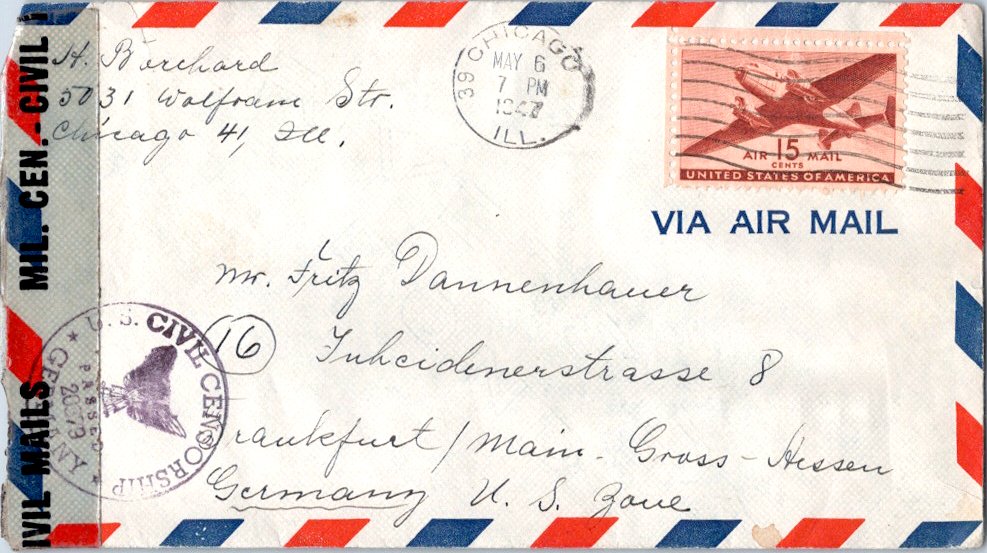 H. Borchard
5031 Wolfram Str.
Chicago 41, Ill.
CHICAGO
39
MAY 6
7 PM
1947
ILL.
AIR 15 MAIL
CENTS
UNITED STATES OF AMERICA
VIA AIR MAIL
Mr. Fritz Dannenhauer
16
Strasse 8
Frankfurt / Main. Gross-Hessen
Germany U. S. Zone
CIVIL MAILS MIL. CEN.-CIVIL
U.S. CIVIL CENSORSHIP
GERMANY
PASSED